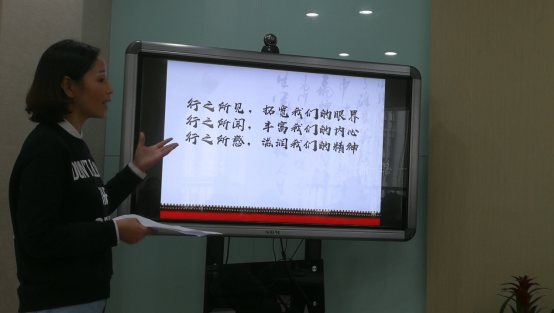 行之所见，拓宽我们的眼界
行之所闻，丰富我们的内心
行之所感，滋润我们的精神
DON'T